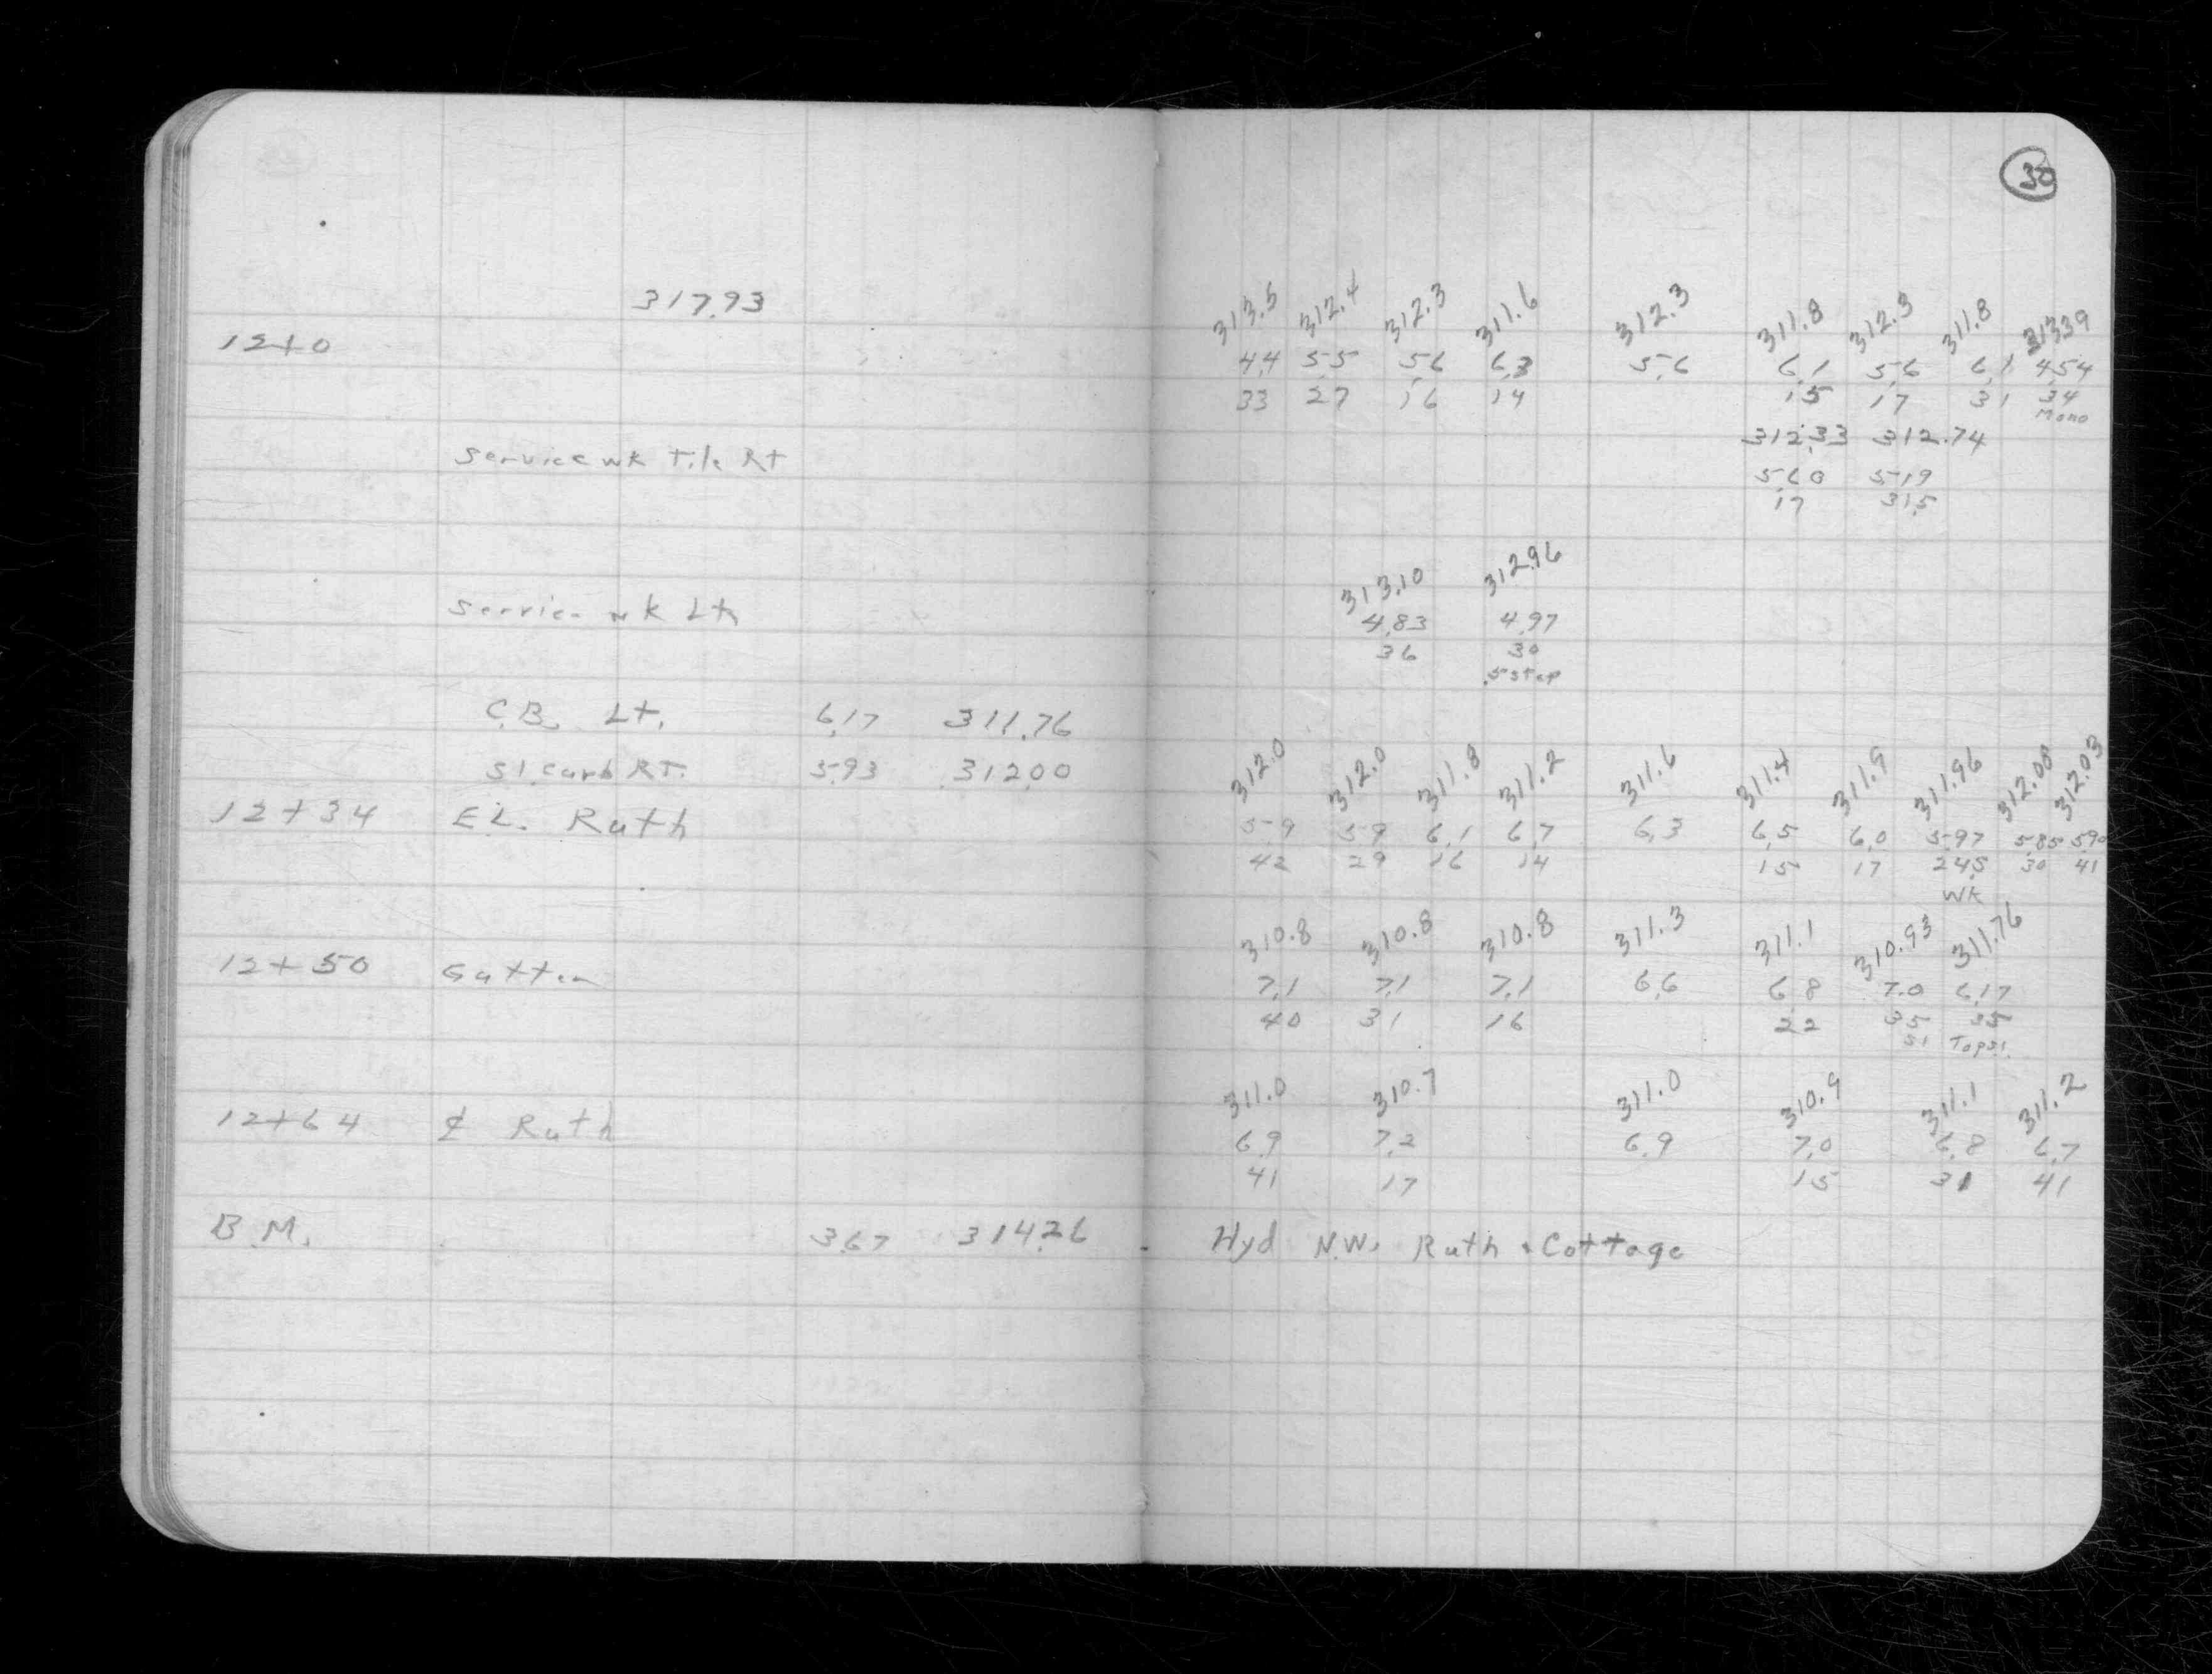 30
317.93
313.5 312.4 312.3 311.6 312.3 311.8 312.3 311.8 313.39
12+0 4.4 5.5 5.6 6.3 5.6 6.1 5.6 6.1 4.54
33 27 16 14 15 17 31 34
Mono
312.33 312.74
Service wk Tile Rt 5.60 5.19
17 31.5
313.10 312.96
Service wk Lt 4.83 4.97
36 30
.5 step
C.B. Lt. 6.17 311.76
St. Curb RT. 5.93 312.00
312.0 312.0 311.8 311.2 311.6 311.4 311.9 311.96 312.08 312.03
12+34 E.L. Ruth 5.9 5.9 6.1 6.7 6.3 6.5 6.0 5.97 5.85 5.90
42 29 16 14 15 17 24.5 30 41
WK
310.8 310.8 310.8 311.3 311.1 310.93 311.76
12+50 Gutter 7.1 7.1 7.1 6.6 6.8 7.0 6.17
40 31 16 22 35 35
S1 Tops1.
311.0 310.7 311.0 310.9 311.1 311.2
12+64 ¢ Ruth 6.9 7.2 6.9 7.0 6.8 6.7
41 17 15 31 41
B.M. 3.67 314.26 Hyd N.W. Ruth & Cottage